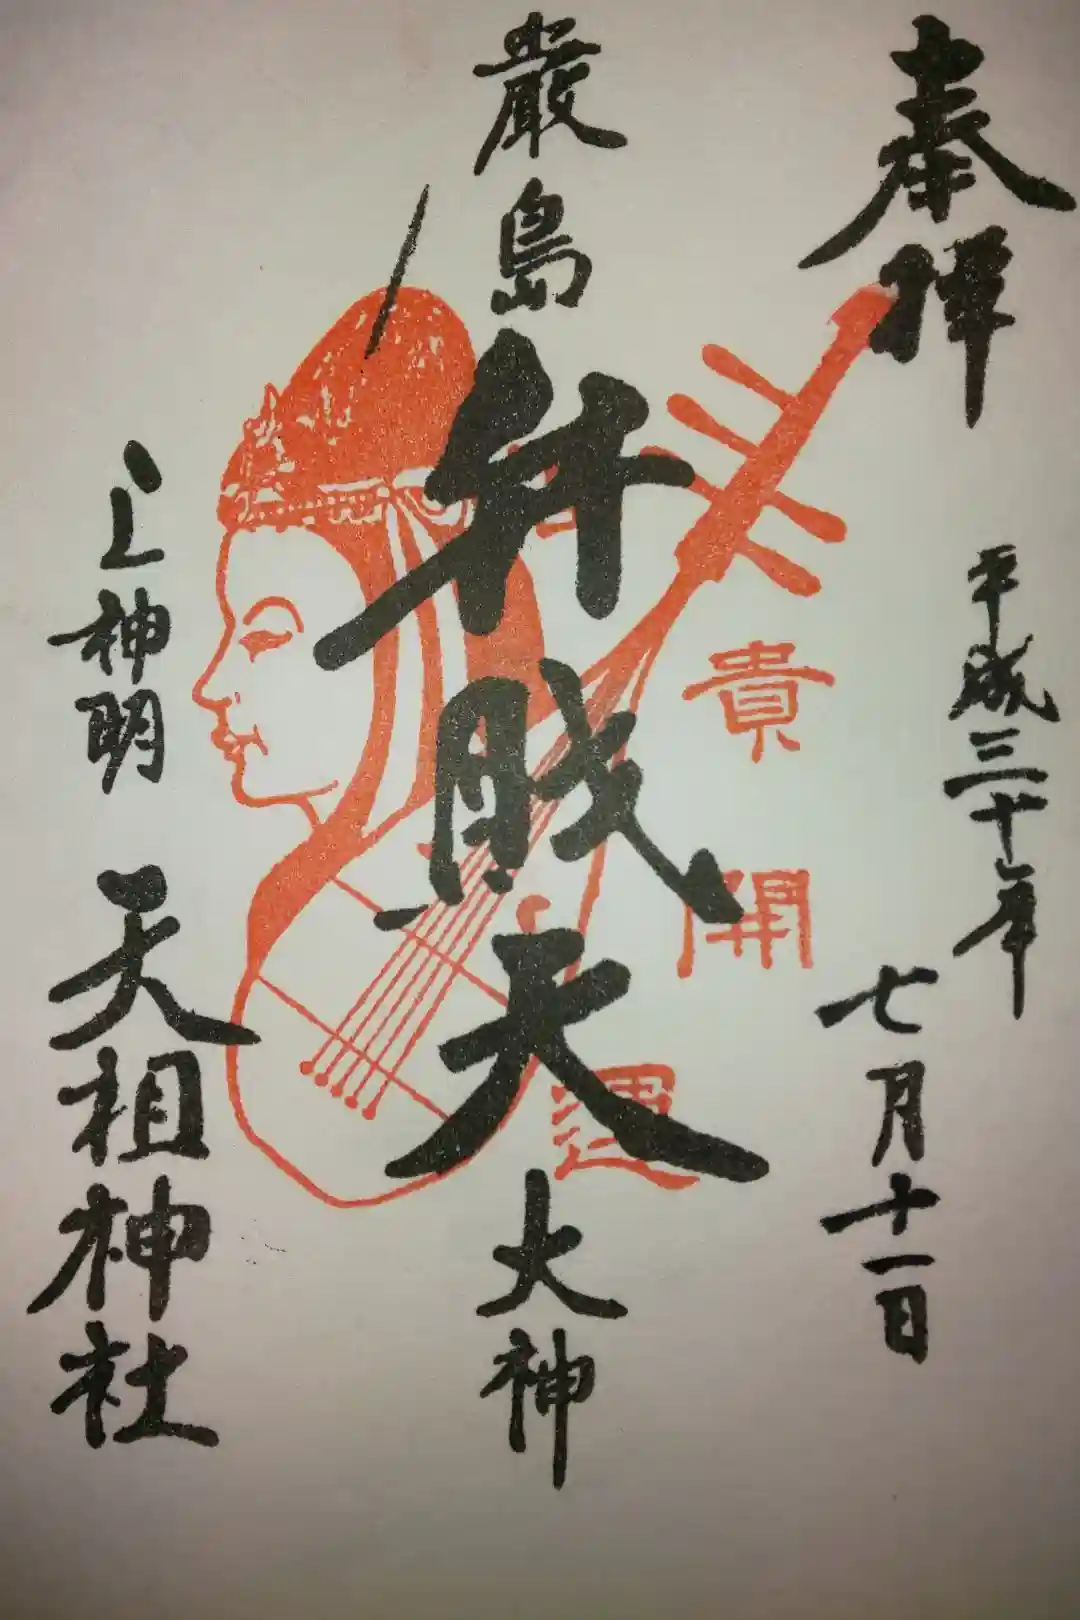 奉拝
平成三十年
七月十一日
貴
開
運
厳島
弁財天
大神
上神明
天祖神社